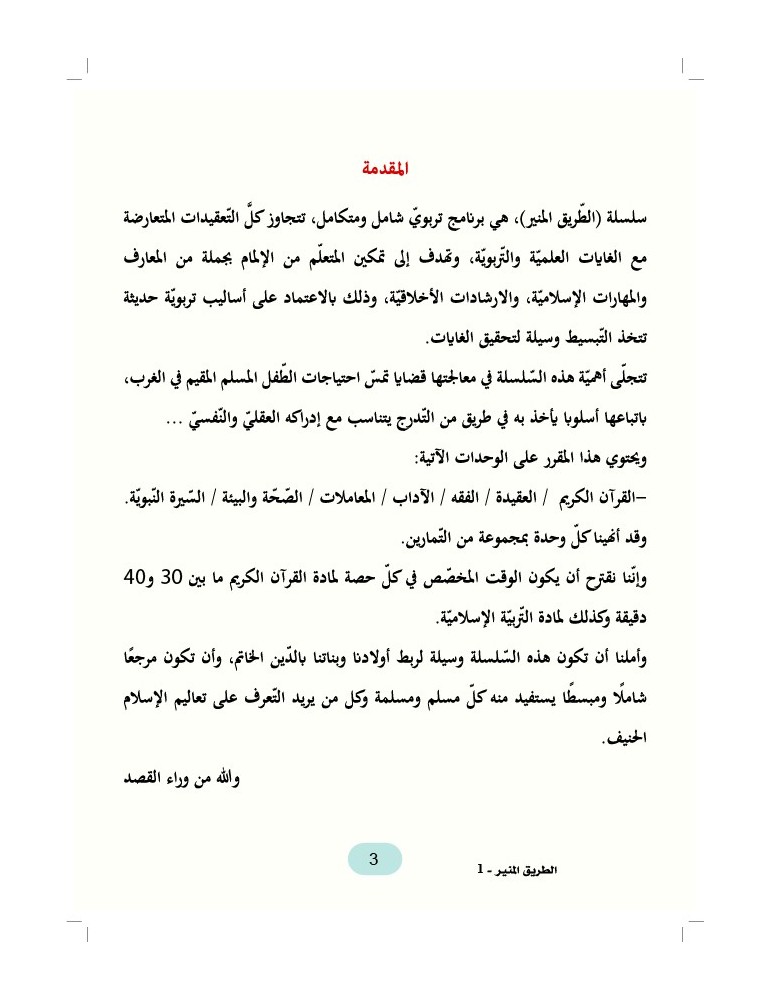 المقدمة
سلسلة (الطّريق المنير)، هي برنامج تربويّ شامل ومتكامل، تتجاوز كلَّ التّعقيدات المتعارضة
مع الغايات العلميّة والتّربويّة، وتهدف إلى تمكين المتعلّم من الإلمام بجملة من المعارف
والمهارات الإسلاميّة، والارشادات الأخلاقيّة، وذلك بالاعتماد على أساليب تربويّة حديثة
تتخذ التّبسيط وسيلة لتحقيق الغايات.
تتجلّى أهميّة هذه السّلسلة في معالجتها قضايا تمسّ احتياجات الطّفل المسلم المقيم في الغرب،
باتباعها أسلوبا يأخذ به في طريق من التّدرج يتناسب مع إدراكه العقليّ والنّفسيّ ...
ويحتوي هذا المقرر على الوحدات الآتية:
–القرآن الكريم / العقيدة / الفقه / الآداب / المعاملات / الصّحّة والبيئة / السّيرة النّبويّة.
وقد أنهينا كلّ وحدة بمجموعة من التّمارين.
وإنّنا نقترح أن يكون الوقت المخصّص في كلّ حصة لمادة القرآن الكريم ما بين 30 و40
دقيقة وكذلك لمادة التّربيّة الإسلاميّة.
وأملنا أن تكون هذه السّلسلة وسيلة لربط أولادنا وبناتنا بالدّين الخاتم، وأن تكون مرجعًا
شاملًا ومبسطًا يستفيد منه كلّ مسلم ومسلمة وكل من يريد التّعرف على تعاليم الإسلام
الحنيف.
والله من وراء القصد
الطريق المنير - 1
3